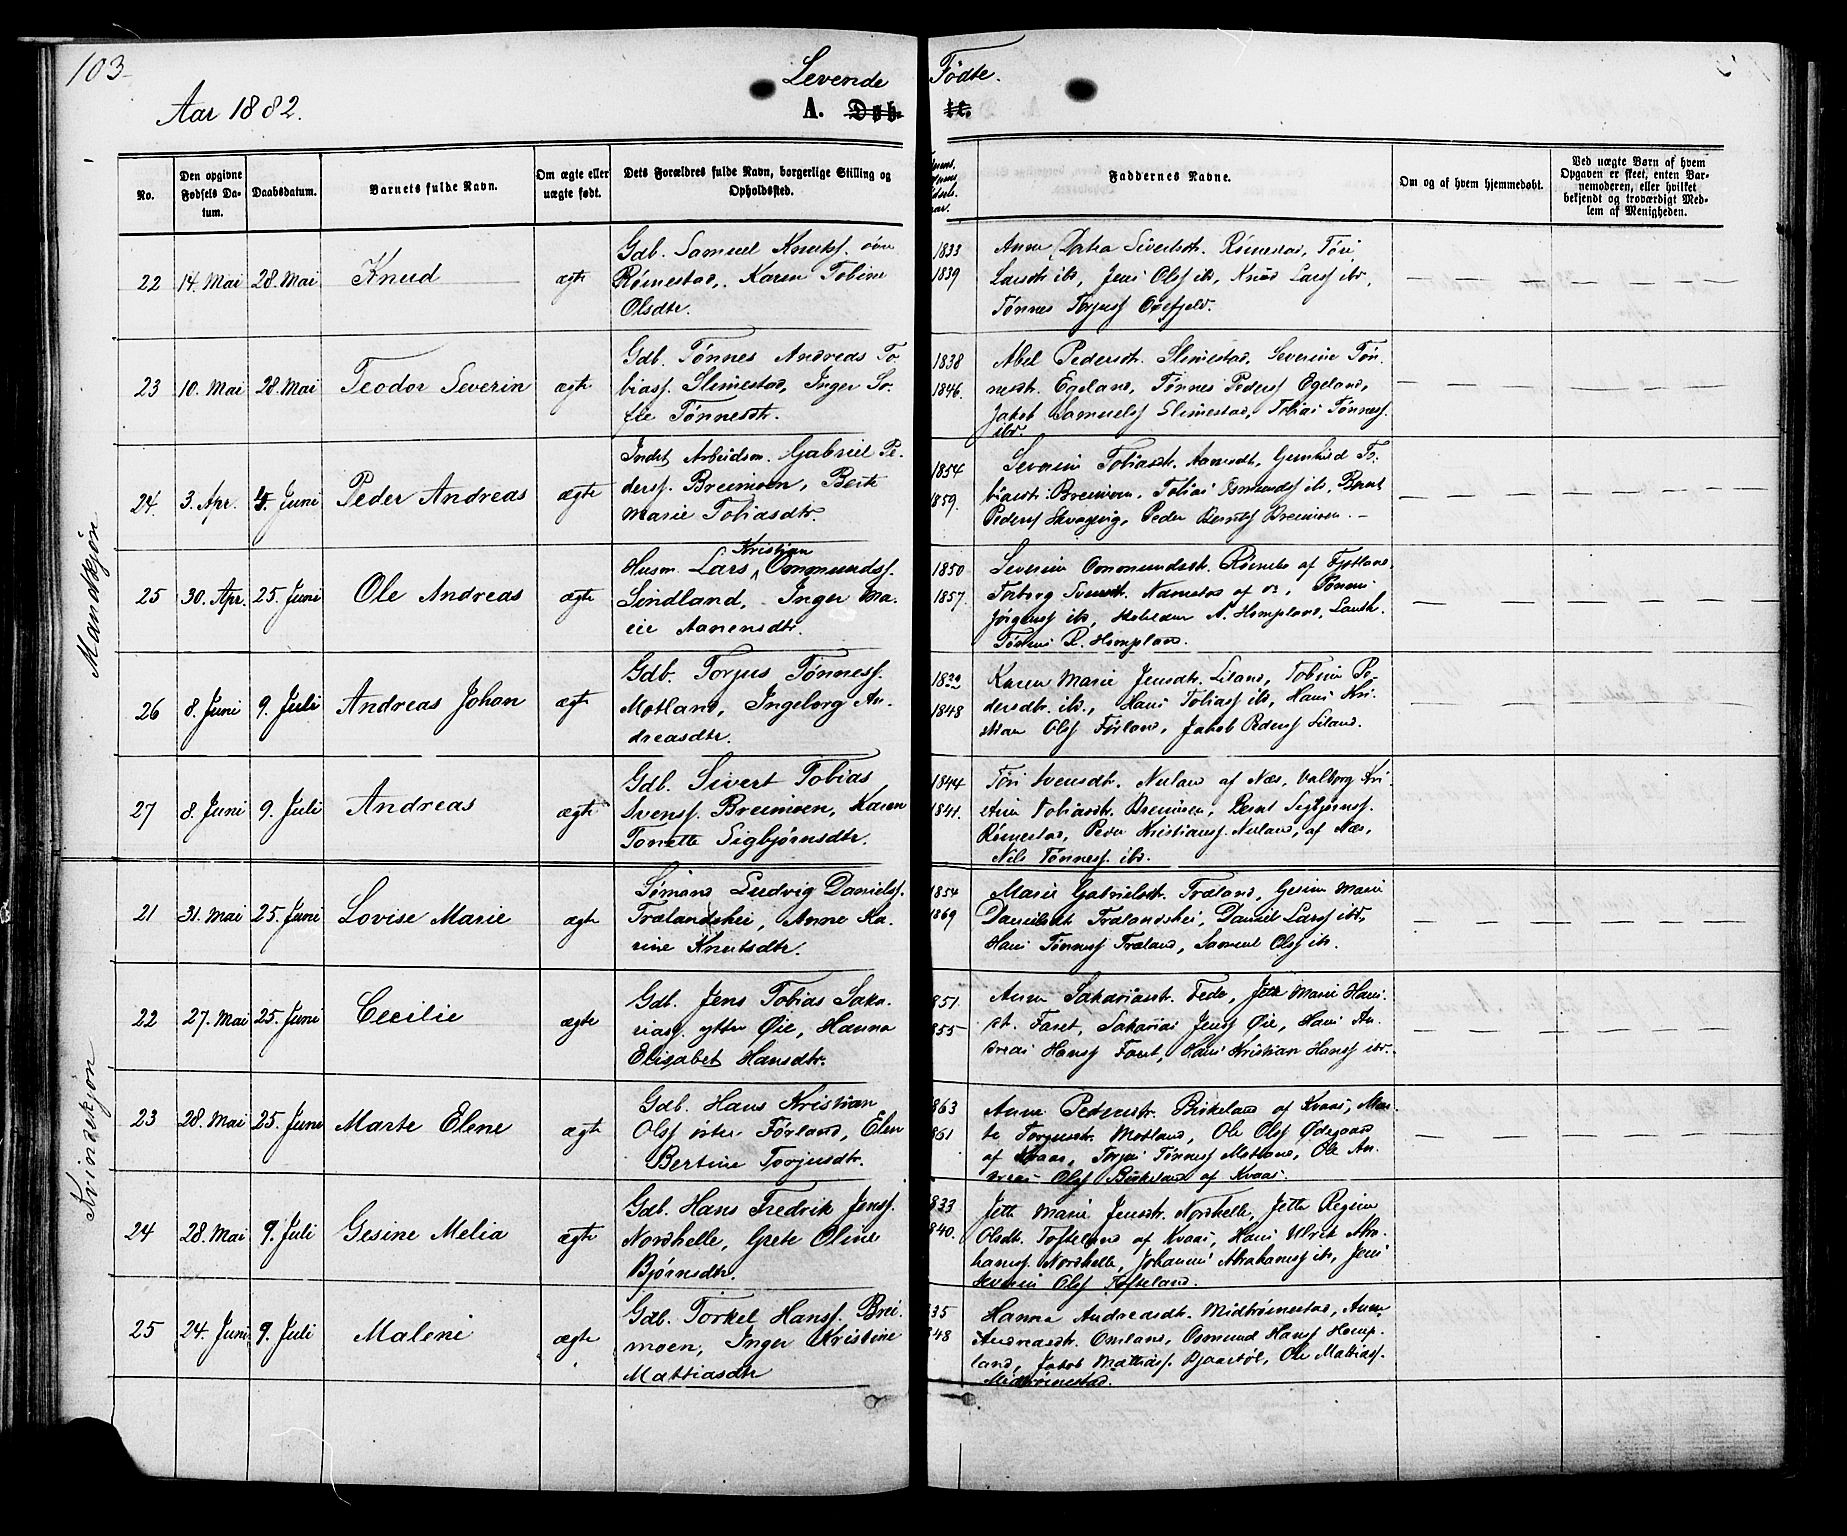 103
Levende Fødte.
Aar 1882.
A. Døbte.
No.
Den opgivne Fødsels Datum.
Daabsdatum.
Barnets fulde Navn.
Om ægte eller uægte født.
Dets Forældres fulde Navn, borgerlige Stilling og Opholdssted.
Faddernes Navne.
Om og af hvem hjemmedøbt.
Ved uægte Barn af hvem Opgaven er skeet, enten Barnemoderen, eller hvilket bekjendt og troværdigt Medlem af Menigheden.
Mandkjøn
22 14. Mai 28. Mai Knud ægte
Gdb. Samuel Knuts. øvre
Rømestad, Karen Tobine
Olsdtr.
1833
1839
Anne Sivertsdt. Rømestad, Tøri
Larsdt ibd, Jens Ols ibd, Knud Lars ibd,
Tønnes Torjus Oxefjeld.
23 10. Mai 28. Mai Teodor Severin ægte
Gdb. Tønnes Andreas To-
bias. Slimestad, Inger So-
fie Tønnesdt.
1838
1846.
Abel Pedersdt. Slimestad, Severine Tøn-
nesdt. Egeland, Tønnes Peders Egeland,
Jakob Samuels Slimestad, Tobias Tønnes.
ibd.
24. 3. Apr. 4. Juni Peder Andreas ægte
Indst Arbeidsm. Gabriel Pe-
ders. Breimoen, Berte
Marie Tobiasdtr.
1854
1859.
Severine Tobiasdt. Gunhild To-
biasdt. Breimoen, Tobias Osmunds ibd, Bernt
Peders, Peder Bernts Breimoen. –
25 30. Apr. 25. Juni Ole Andreas ægte
Husm. Lars Kristian Ommunds.
Sindland, Inger Ma-
rie Aanensdtr.
1850
1857.
Severine Ommundsdt. Rømeto af Fjotland,
Torborg Svensdt. Namestad af
Jørgens ibd, A. Hompland,
P. Hompland.
26 8. Juni 9. Juli Andreas Johan ægte
Gdb. Torjus Tønnes.
Motland, Ingeborg An-
dreasdtr.
1848
Karen Marie Jensdt. Liland, Tobine Pe-
dersdt. ibd., Hans Tobias ibd, Hans Kri-
stian Ols Førland, Jakob Peders Liland.
27 8. Juni 9. Juli Andreas ægte
Gdb. Sivert Tobias
Svens. Breimoen, Karen
Tonette Sigbjørnsdtr.
1844
1841.
Tøri Svensdt. Nuland af Næs, Valborg Kri-
stine Tobiasdt. Breimoen, Bernt Sigbjørns.
Rømestad, Peder Kristians. Nuland, af Næs,
Nils Tønnes. ibd.
Kvindekjøn
21 31. Mai 25. Juni Lovise Marie ægte
Sømand Ludvig Daniels.
Trælandshei, Anne Ka-
rine Knutsdtr.
1854
1869
Marie Gabrielsdt. Træland, Gesine Marie
Danielsdt Trælandshei, Daniel Lars ibd,
Hans Tønnes Træland, Samuel Ols ibd.
22 27. Mai 25. Juni Cecilie ægte
Gdb. Jens Tobias Saka-
rias. ytter Øie, Hanna
Elisabet Hansdtr.
851
855
Anne Sakariasdt. Fede, Jette Marie Hans-
dt. Faret, Sakarias Jens Øie, Hans An-
dreas Hans Faret, Hans Kristian Hans ibd.
23 28. Mai 25. Juni Marte Elene ægte
Gdb. Hans Kristian
Ols øster Førland, Elen
Bertine Torjusdtr.
863
861
Anne Pedersdtr. Birkeland af Kvaas, Mar-
te Torjusdt. Motland, Ole Ols Ødegaard
af Kvaas, Torjus Tønnes Motland, Ole An-
dreas Ols Birkeland af Kvaas.
24 28. Mai 9. Juli Gesine Melia ægte
Gdb. Hans Fredrik Jens.
Nordhelle, Grete Oline
Bjørnsdtr.
833
840.
Jette Marie Jensdt. Nordhelle, Jette Regine
Olsdt. Tofteland af Kvaas, Hans Ulrik Abra-
hams. Nordhelle, Johannes Abrahams ibd, Jens
Severin Ols Tofteland.
25 24. Juni 9. Juli Malene ægte
Gdb. Torkel Hans. Brei-
moen, Inger Kristine
Mattiasdtr
835
848
Hanna Andreasdt. Midtrømestad, Anne
Andreasdt. Omland, Osmund Hans Homp-
land, Jakob Mathias. Bjaastøl, Ole Mattias.
Midtrømestad.